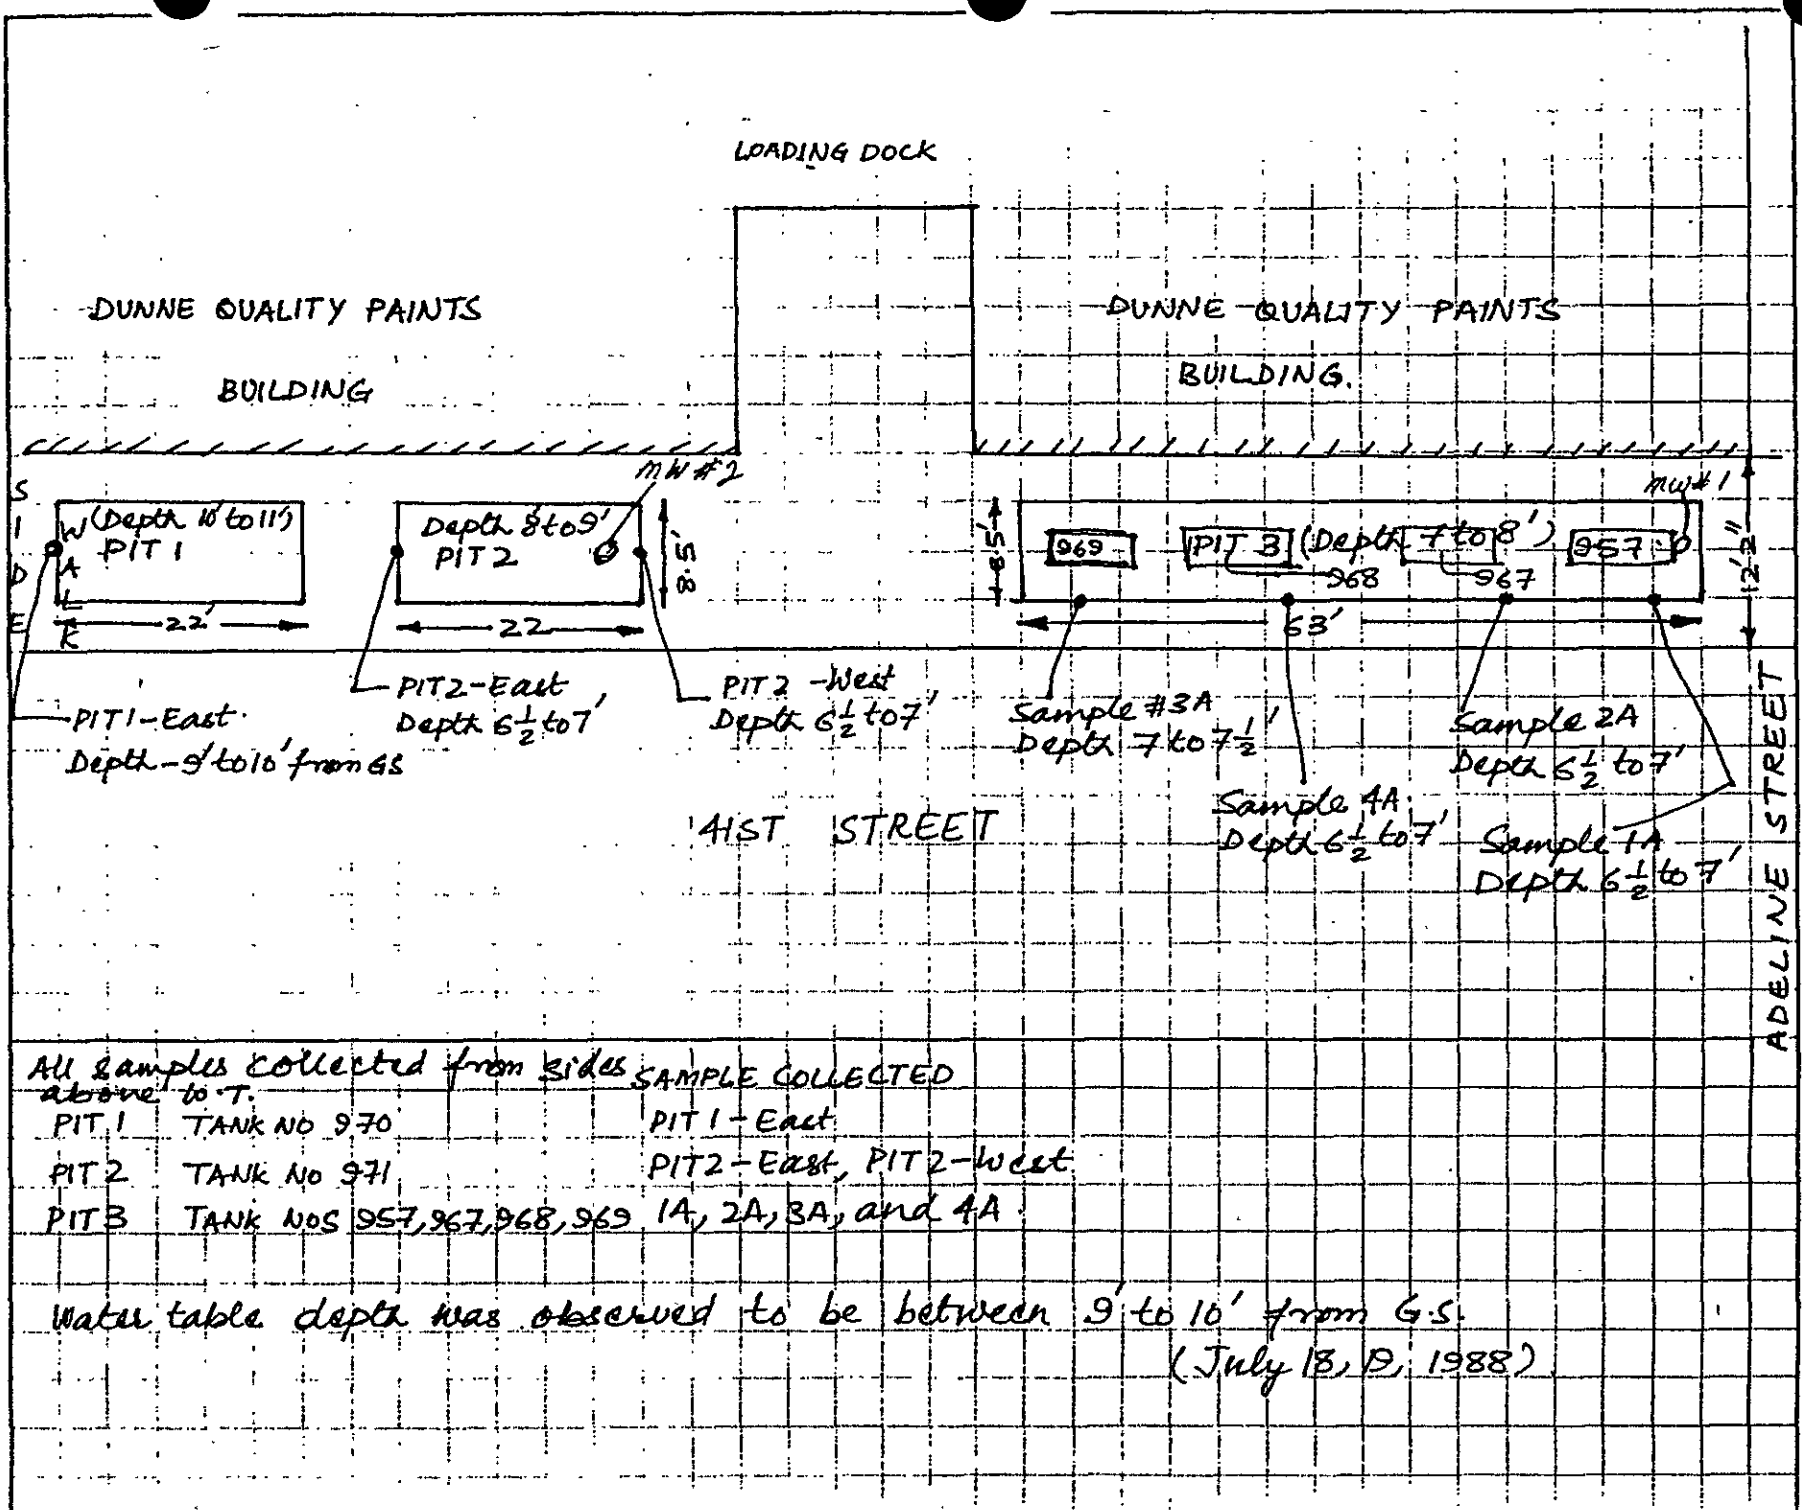 LOADING DOCK
DUNNE QUALITY PAINTS
BUILDING
DUNNE QUALITY PAINTS
BUILDING.
SIDE
WALK
(Depth 10' to 11')
PIT 1
22'
MW #2
Depth 8' to 9'
PIT 2
8.5'
22
MW#1
8.5'
969
PIT 3 (Depth 7 to 8')
957
968
967
63'
12'2"
PIT1-East.
Depth-9' to 10' from GS
PIT2-East
Depth 6½ to 7'
PIT2 -West
Depth 6½ to 7'
Sample #3A
Depth 7 to 7½'
Sample 4A.
Depth 6½ to 7'
Sample 2A
Depth 6½ to 7'
Sample 1A
Depth 6½ to 7'
41ST STREET
ADELINE STREET
All samples collected from sides
above to.T.
SAMPLE COLLECTED
PIT 1 TANK NO 970 PIT 1-East
PIT 2 TANK NO 971 PIT2-East, PIT2-West
PIT 3 TANK NOS 957,967,968,969 1A, 2A, 3A, and 4A.
Water table depth was observed to be between 9' to 10' from G.S.
(July 18, 19, 1988)